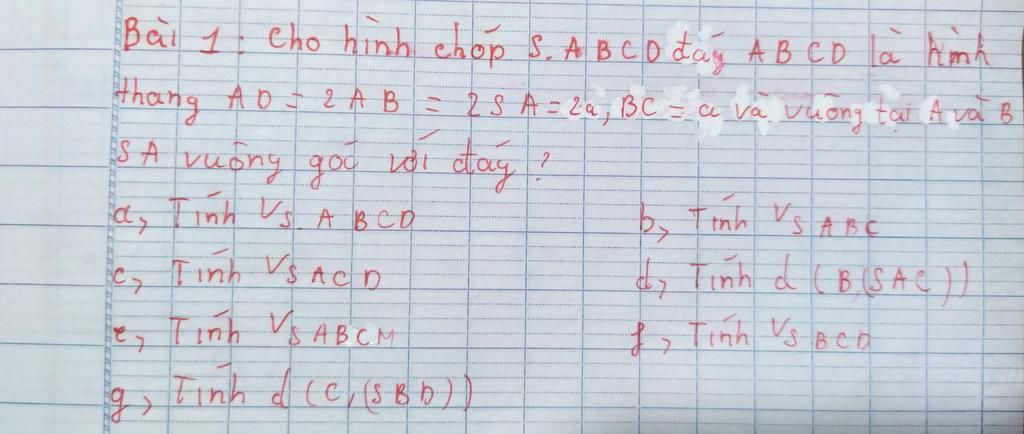 Bài 1: Cho hình chóp S.ABCD đáy ABCD là hình
thang AD = 2AB = 2SA = 2a, BC = a và vuông tại A và B
SA vuông góc với đáy?
a, Tính VS.ABCD b, Tính VSABC
c, Tính VSACD d, Tính d(B,(SAC))
e, Tính VSABCM f, Tính VSBCD
g, Tính d(C,(SBD))